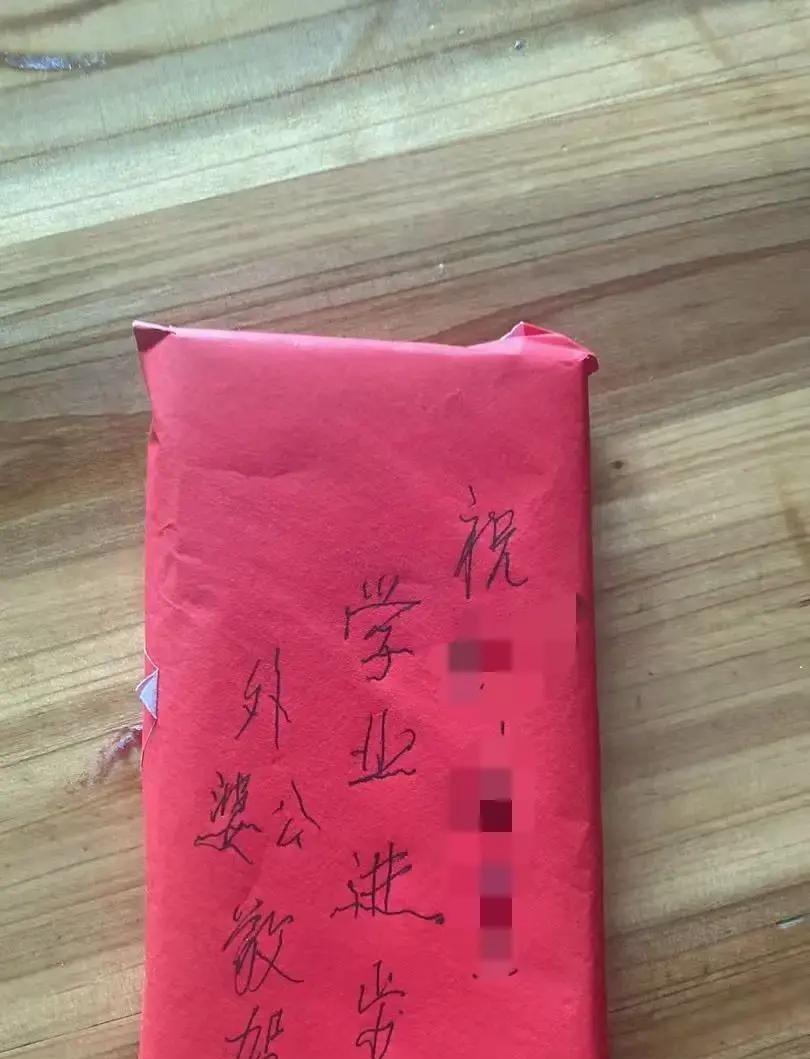 祝
学业进步
外公婆敬贺